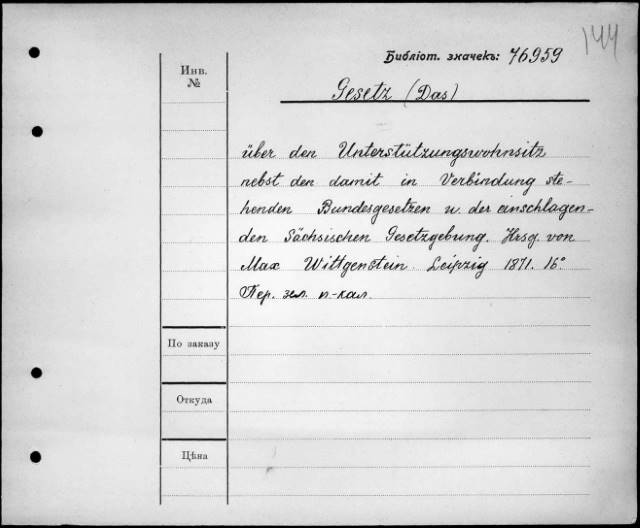 144
Библіот. значекъ: 76959
Инв.
№
Gesetz (Das)
über den Unterstützungswohnsitz
nebst den damit in Verbindung ste-
henden Bundesgesetzen u. der einschlagen-
den Sächsischen Gesetzgebung. Hrsg. von
Max Wittgenstein. Leipzig 1871. 16°.
Пер. зел. п-кал.
По заказу
Откуда
Цѣна